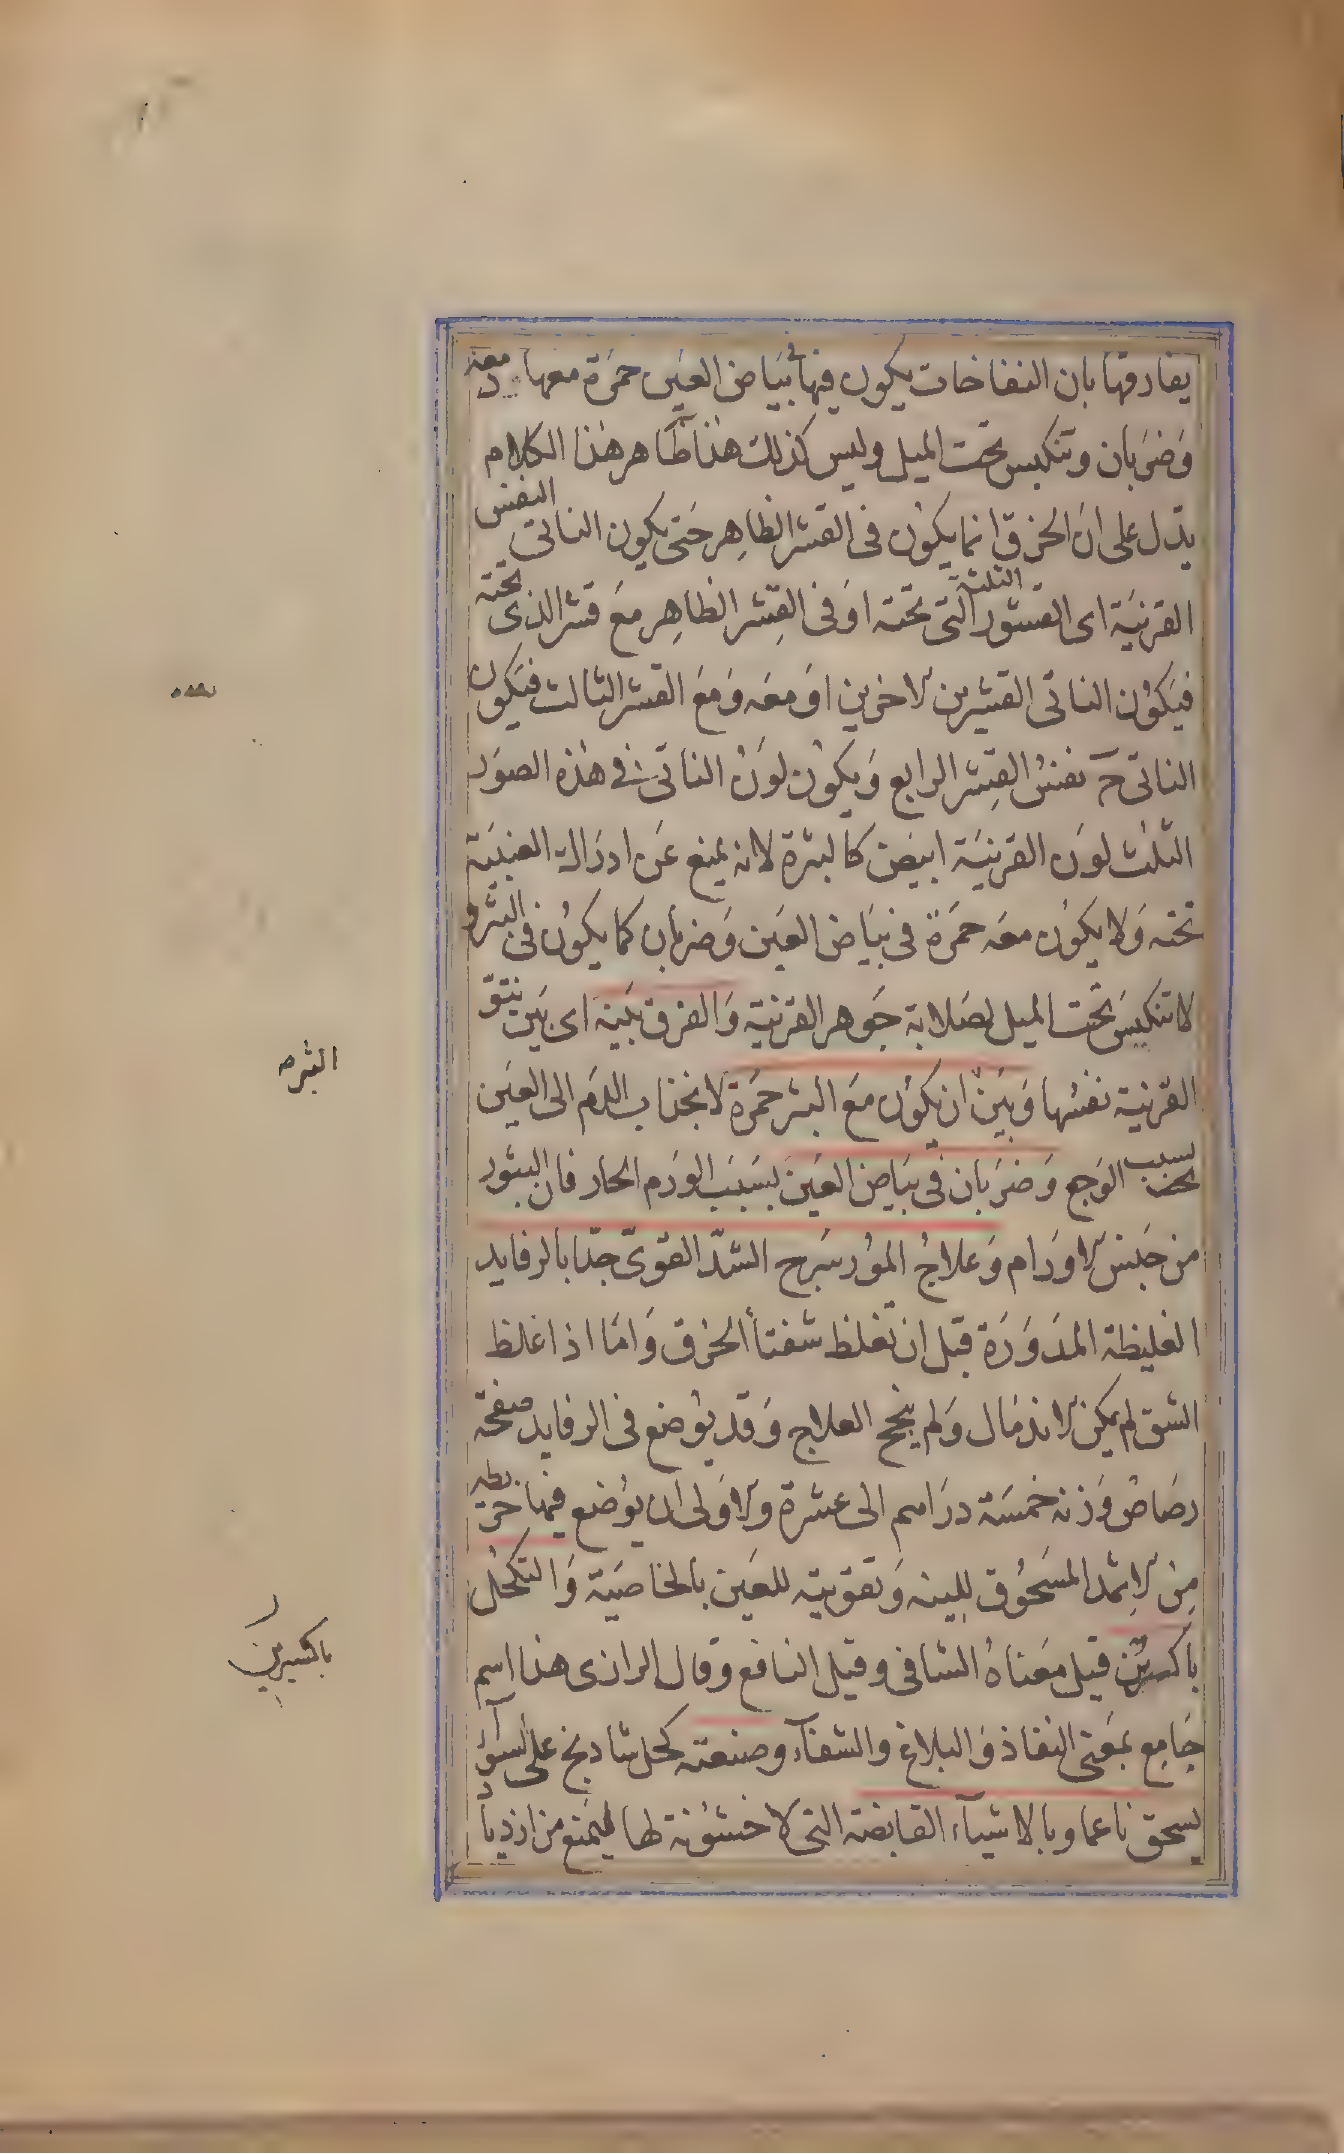 يفارقها بان النفاخات يكون فيها فى بياض العين حمرة معها دمعة
وضربان وتنكبس تحت الميل وليس كذلك هذا ظاهر هذا الكلام
يدل على ان الخرق انما يكون فى القشر الظاهر حتى يكون الناتى النفس
القرنية اى القشور الثلثة التى تحته او فى القشر الظاهر مع قشر الذى تحته
فيكون الناتى القشرين الاخرين او معه ومع القشر الثالث فيكون
الناتى ح نفس القشر الرابع ويكون لون الناتى فى هذه الصور
الثلث لون القرنية ابيض كالبثرة لانه يمنع عن ادراك العنبية
تحته ولا يكون معه حمرة فى بياض العين وضربان كما يكون فى البثر و
لا تنكبس تحت الميل لصلابة جوهر القرنية والفرق بينه اى بين نتو
القرنية نفسها وبين ان يكون مع البثر حمرة لانجذاب الدم الى العين
بسبب الوجع وضربان فى بياض العين بسبب الورم الحار فان البثور
من جنس الاورام وعلاج المورسرج الشد القوى جدا بالرفايد
الغليظة المدورة قبل ان تغلظ شفتا الخرق واما اذا غلظ
الشق لم يمكن الاندمال ولم ينجح العلاج وقد يوضع فى الرفايد صفحة
رصاص وزنه خمسة دراهم الى عشرة والاولى ان يوضع فيها خريطة
من الاثمد المسحوق للينه وتقويته للعين بالخاصية والتكحل
باكسيرين قيل معناه الشافى وقيل النافع وقال الرازى هذا اسم
جامع بمعنى النفاذ والبلاغ والشفاء وصنعته كحل شادنج على السواء
يسحق ناعما وبالاشياء القابضة التى لا خشونة لها ليمنع من ازدياد
البثره
باكسيرين